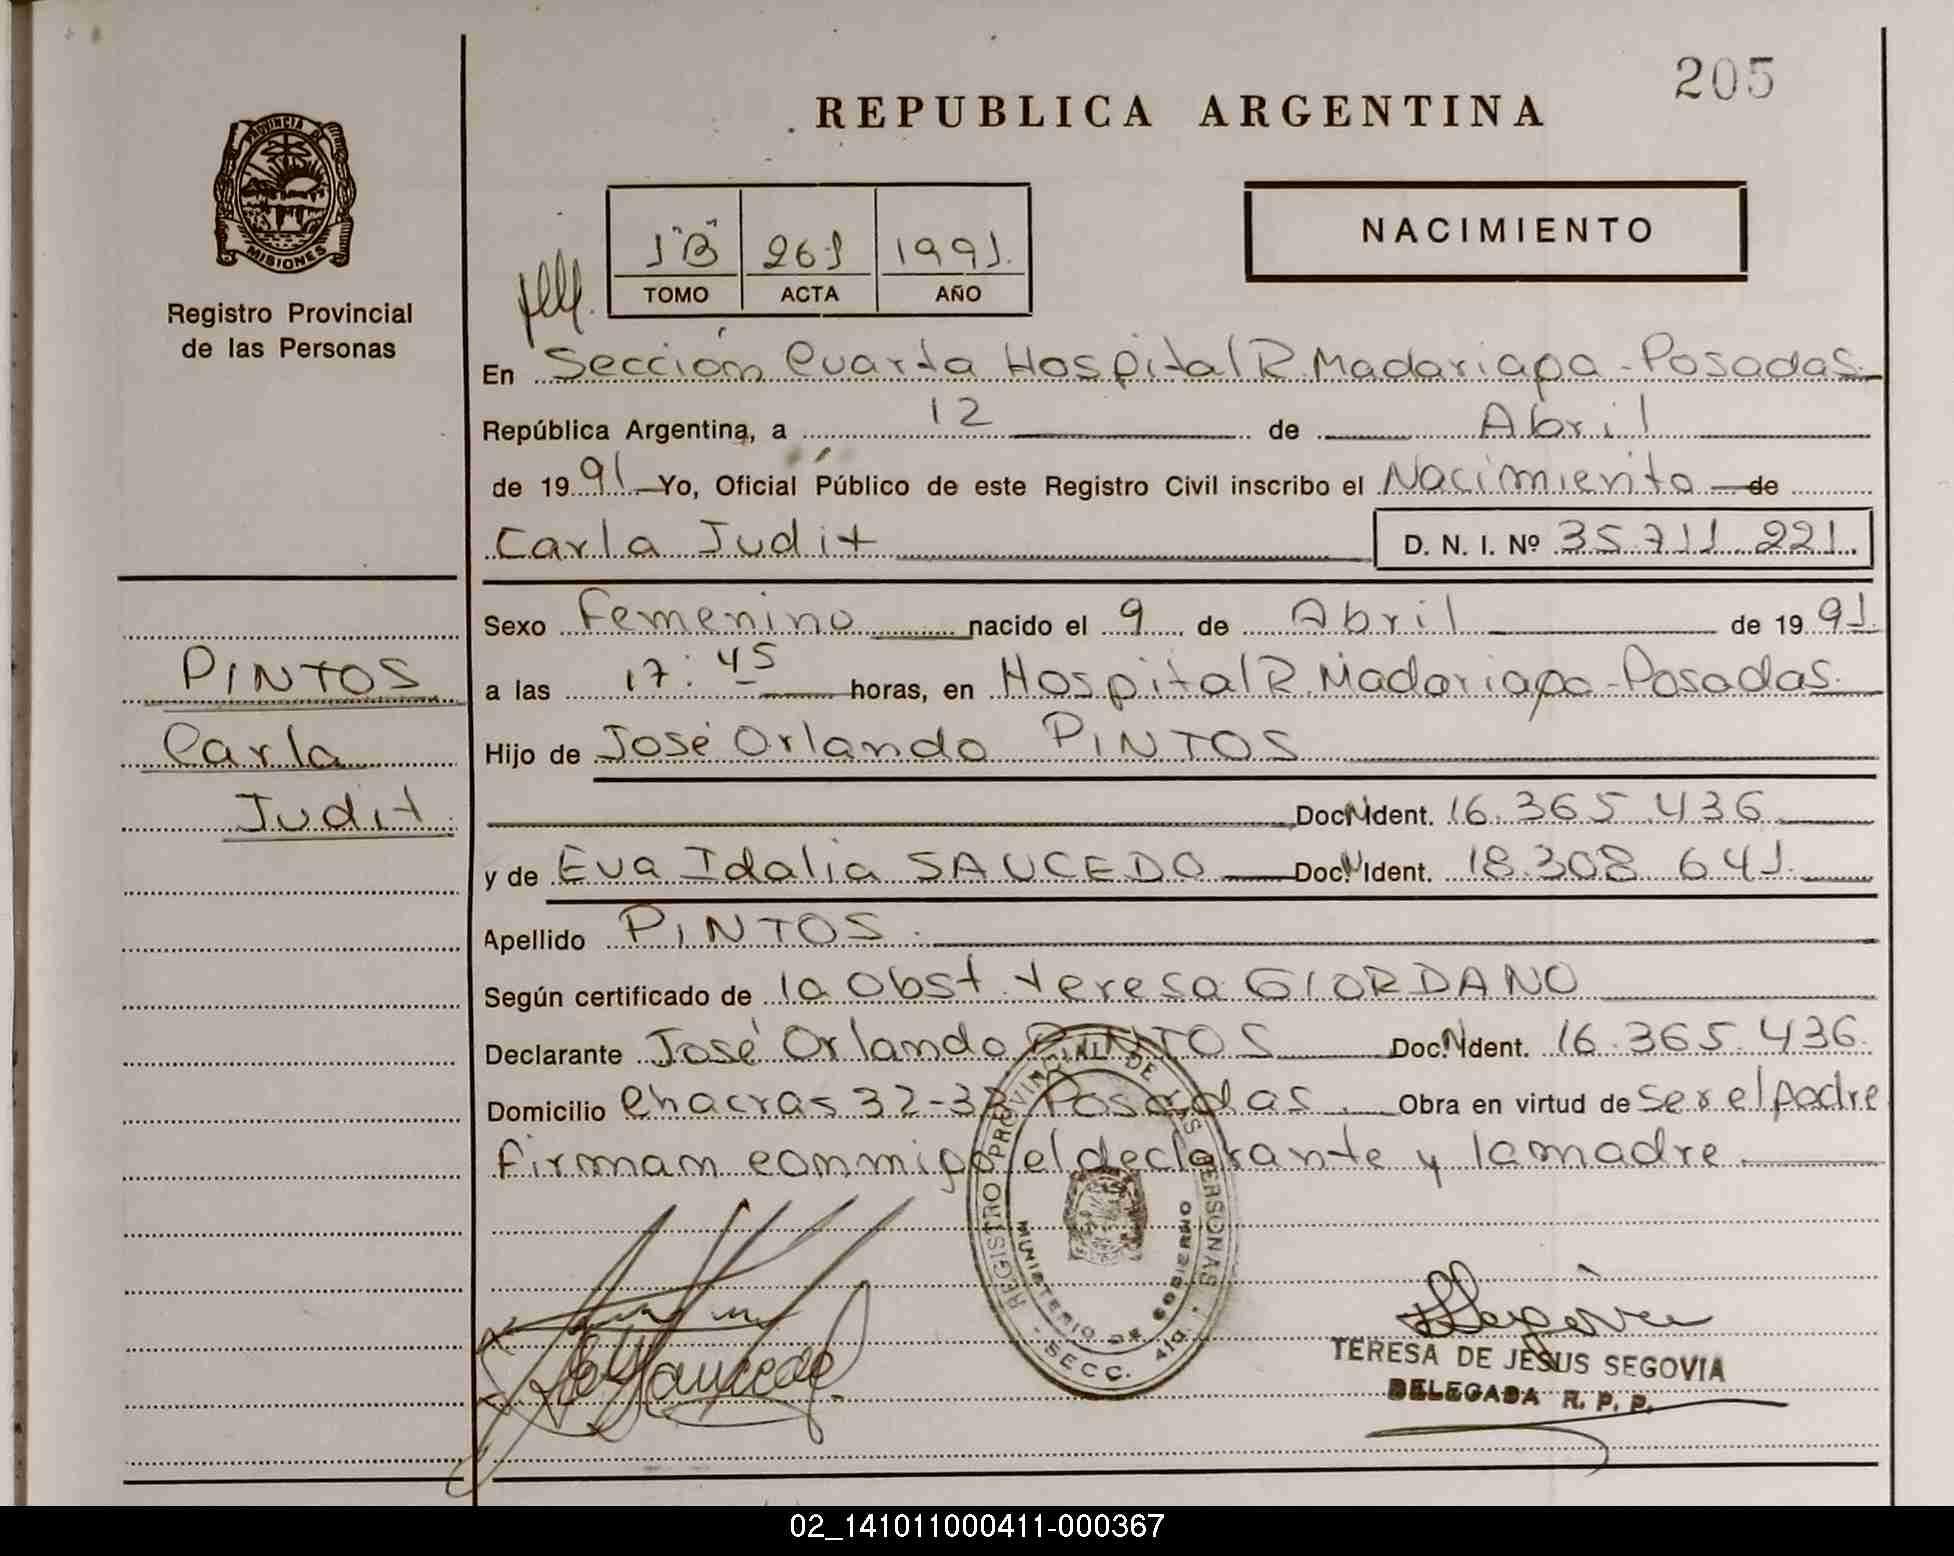 205
REPUBLICA ARGENTINA
PROVINCIA DE MISIONES
Registro Provincial
de las Personas
1"B" 261 1991.
TOMO ACTA AÑO
NACIMIENTO
En Sección Cuarta Hospital R. Madariaga - Posadas.
República Argentina, a 12 de Abril
de 1991 Yo, Oficial Público de este Registro Civil inscribo el Nacimiento de
Carla Judit D. N. I. Nº 35.711.221.
Sexo Femenino nacido el 9 de Abril de 1991.
a las 17:45 horas, en Hospital R. Madariaga - Posadas.
Hijo de José Orlando PINTOS
Doc. N Ident. 16.365.436
y de Eva Idalia SAUCEDO Doc. N Ident. 18.308.641.
Apellido PINTOS.
Según certificado de la Obst. Teresa GIORDANO
Declarante José Orlando PINTOS Doc. N Ident. 16.365.436.
Domicilio Chacras 32-33 Posadas. Obra en virtud de ser el padre
firman conmigo el declarante y la madre.
PINTOS
Carla
Judit
REGISTRO PROVINCIAL DE LAS PERSONAS
MINISTERIO DE GOBIERNO
SECC. 4ta
Saucedo
Segovia
TERESA DE JESUS SEGOVIA
DELEGADA R. P. P.
02_141011000411-000367